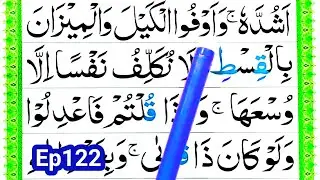 اَشُدَّهٗ ۚ وَاَوْفُوا الْكَيْلَ وَالْمِيْزَانَ
بِالْقِسْطِ ۚ لَا نُكَلِّفُ نَفْسًا اِلَّا
وُسْعَهَا ۚ وَاِذَا قُلْتُمْ فَاعْدِلُوْا
وَلَوْ كَانَ ذَا
Ep122